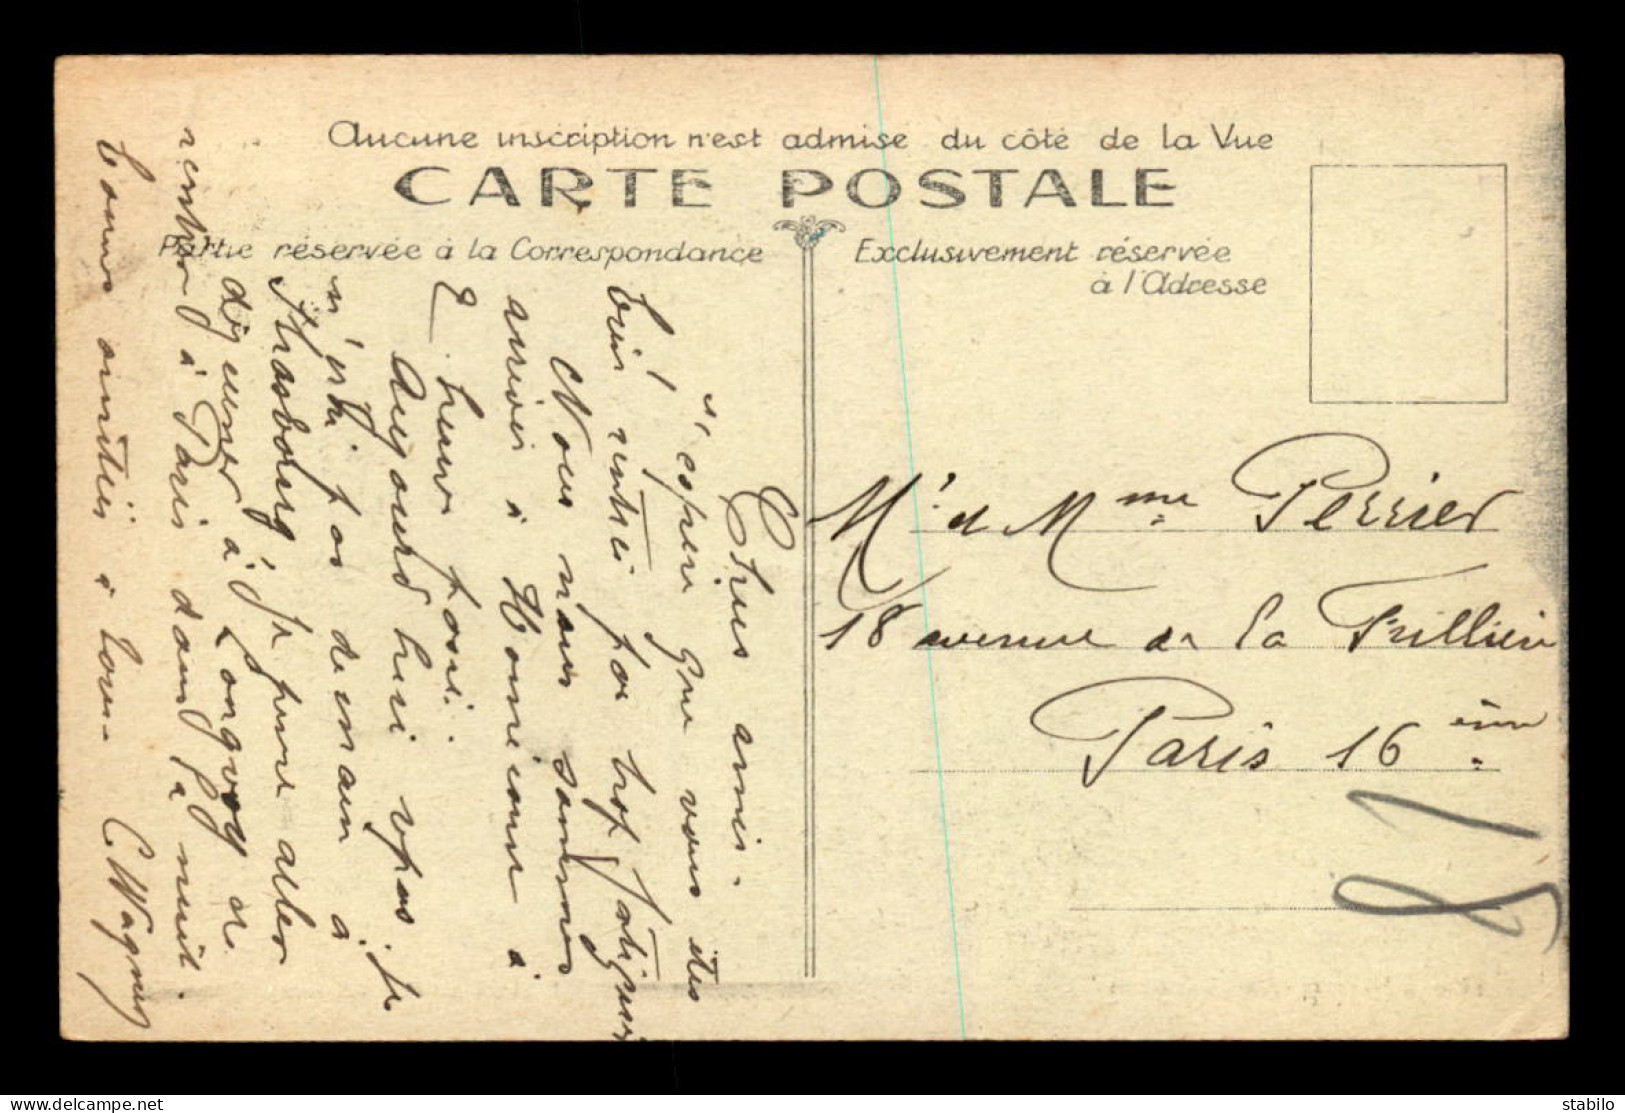 Aucune inscription n'est admise du côté de la Vue
CARTE POSTALE
Partie réservée à la Correspondance
Exclusivement réservée
à l'Adresse
Chers amis.
J'espère que vous êtes
bien rentrés pas trop fatigués
Nous nous sommes
arrivés à Homécourt à
2 heures
Aujourd'hui
n'est pas demain à
Strasbourg. Je pense aller
déjeuner à Longwy et
rentrer à Paris dans la nuit.
bonnes amitiés à tous.
C Wagner
Mr et Mme Perrier
18 avenue de la
Paris 16 ème
18
delcampe.net
stabilo